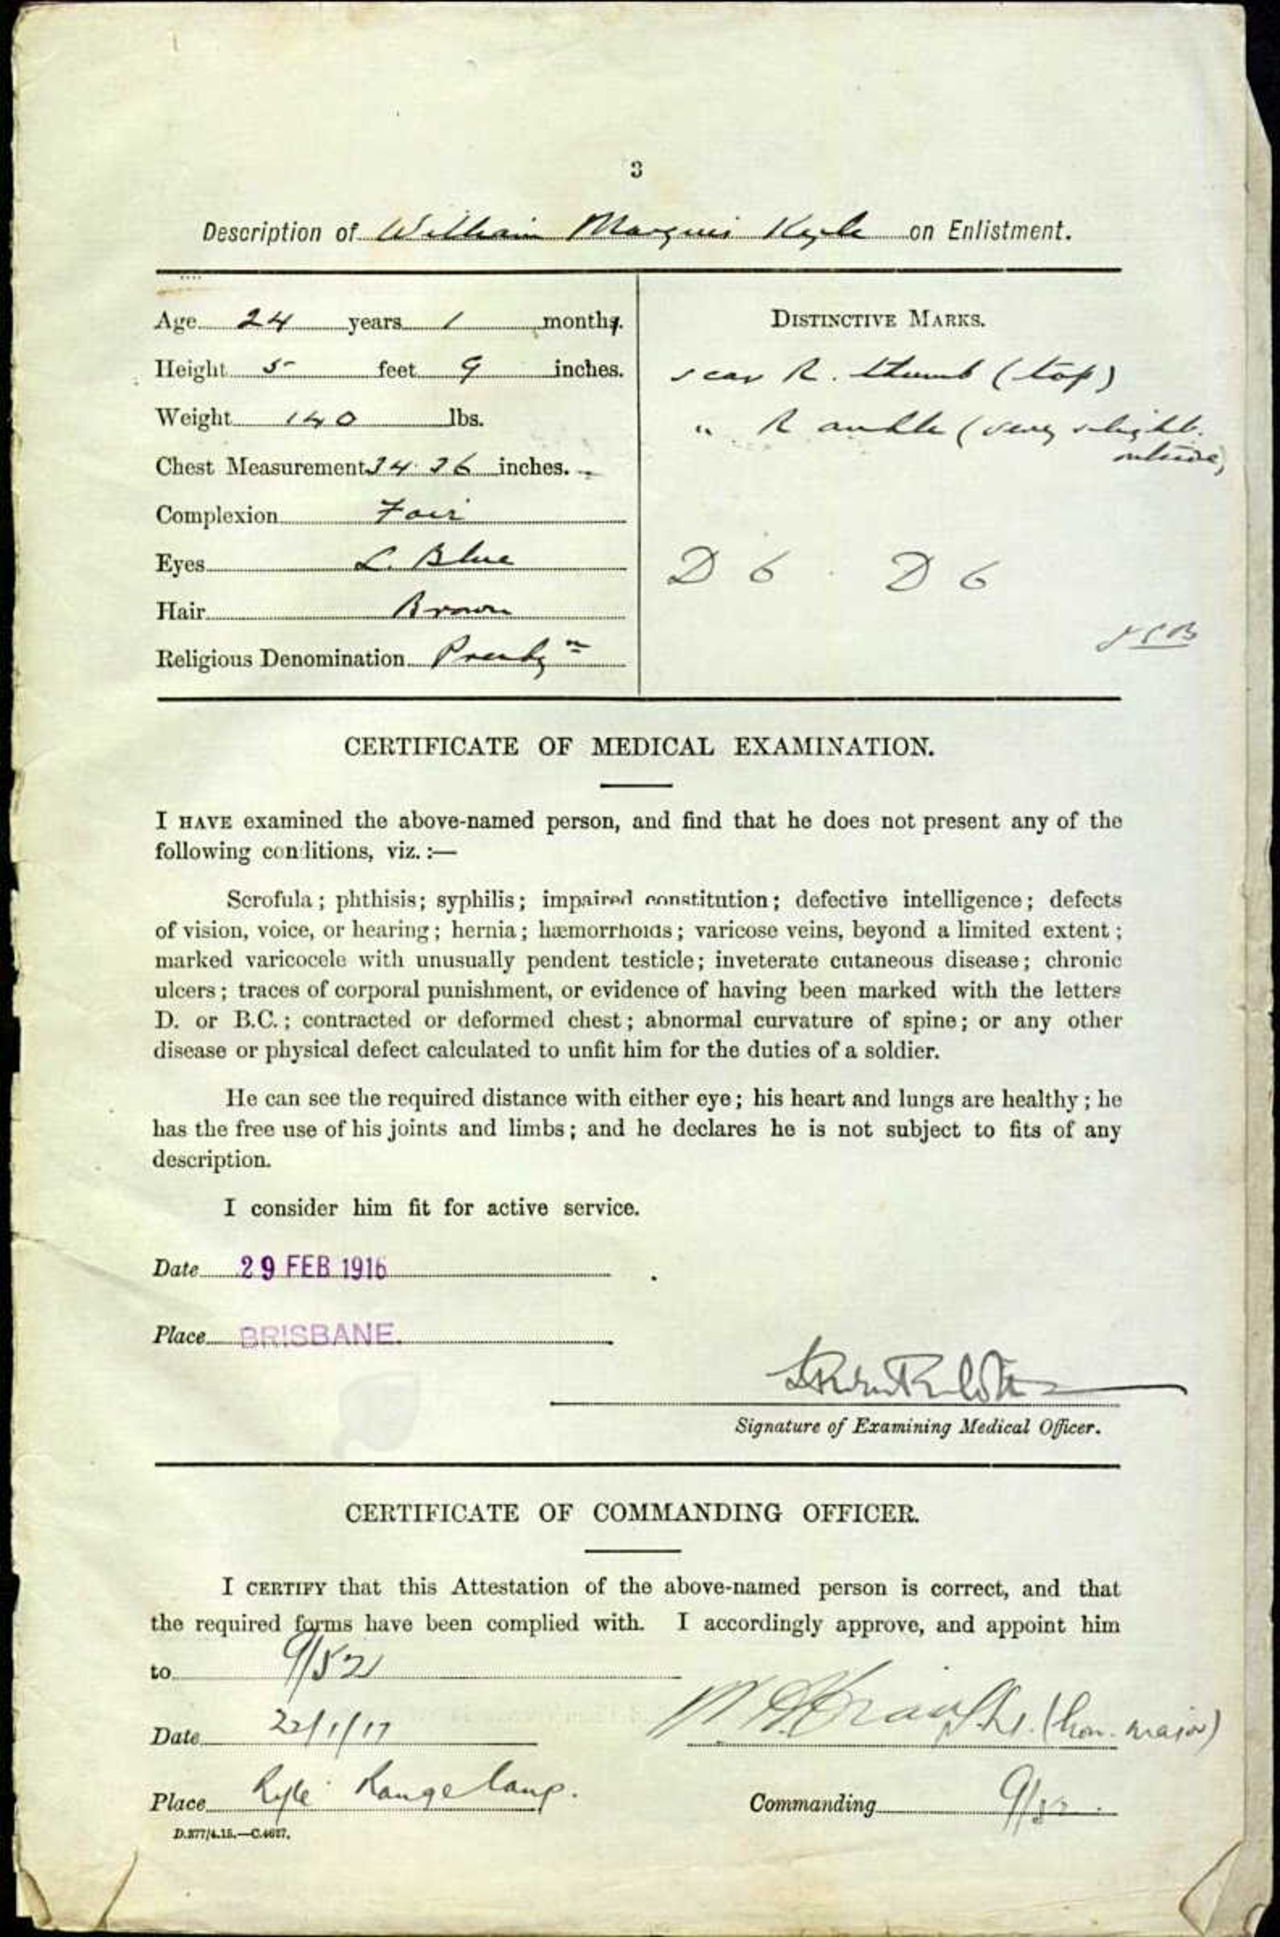 3
Description of William Marquis Kyle on Enlistment.
Age 24 years 1 months.
Height 5 feet 9 inches.
Weight 140 lbs.
Chest Measurement 34 36 inches.
Complexion Fair
Eyes L. Blue
Hair Brown
Religious Denomination Presbyn
DISTINCTIVE MARKS.
scar R. thumb (top)
" R ankle (very slight.
outside)
D 6 . D 6
CERTIFICATE OF MEDICAL EXAMINATION.
I HAVE examined the above-named person, and find that he does not present any of the
following conditions, viz. :—
Scrofula ; phthisis ; syphilis ; impaired constitution ; defective intelligence ; defects
of vision, voice, or hearing ; hernia ; hæmorrhoids ; varicose veins, beyond a limited extent ;
marked varicocele with unusually pendent testicle ; inveterate cutaneous disease ; chronic
ulcers ; traces of corporal punishment, or evidence of having been marked with the letters
D. or B.C. ; contracted or deformed chest ; abnormal curvature of spine ; or any other
disease or physical defect calculated to unfit him for the duties of a soldier.
He can see the required distance with either eye ; his heart and lungs are healthy ; he
has the free use of his joints and limbs ; and he declares he is not subject to fits of any
description.
I consider him fit for active service.
Date 29 FEB 1916
Place BRISBANE.
Signature of Examining Medical Officer.
CERTIFICATE OF COMMANDING OFFICER.
I CERTIFY that this Attestation of the above-named person is correct, and that
the required forms have been complied with. I accordingly approve, and appoint him
to 9/52
Date 22/1/17
(Hon. Major)
Place Rifle Range Camp.
Commanding 9/52.
D.877/4.15.—C.4627.